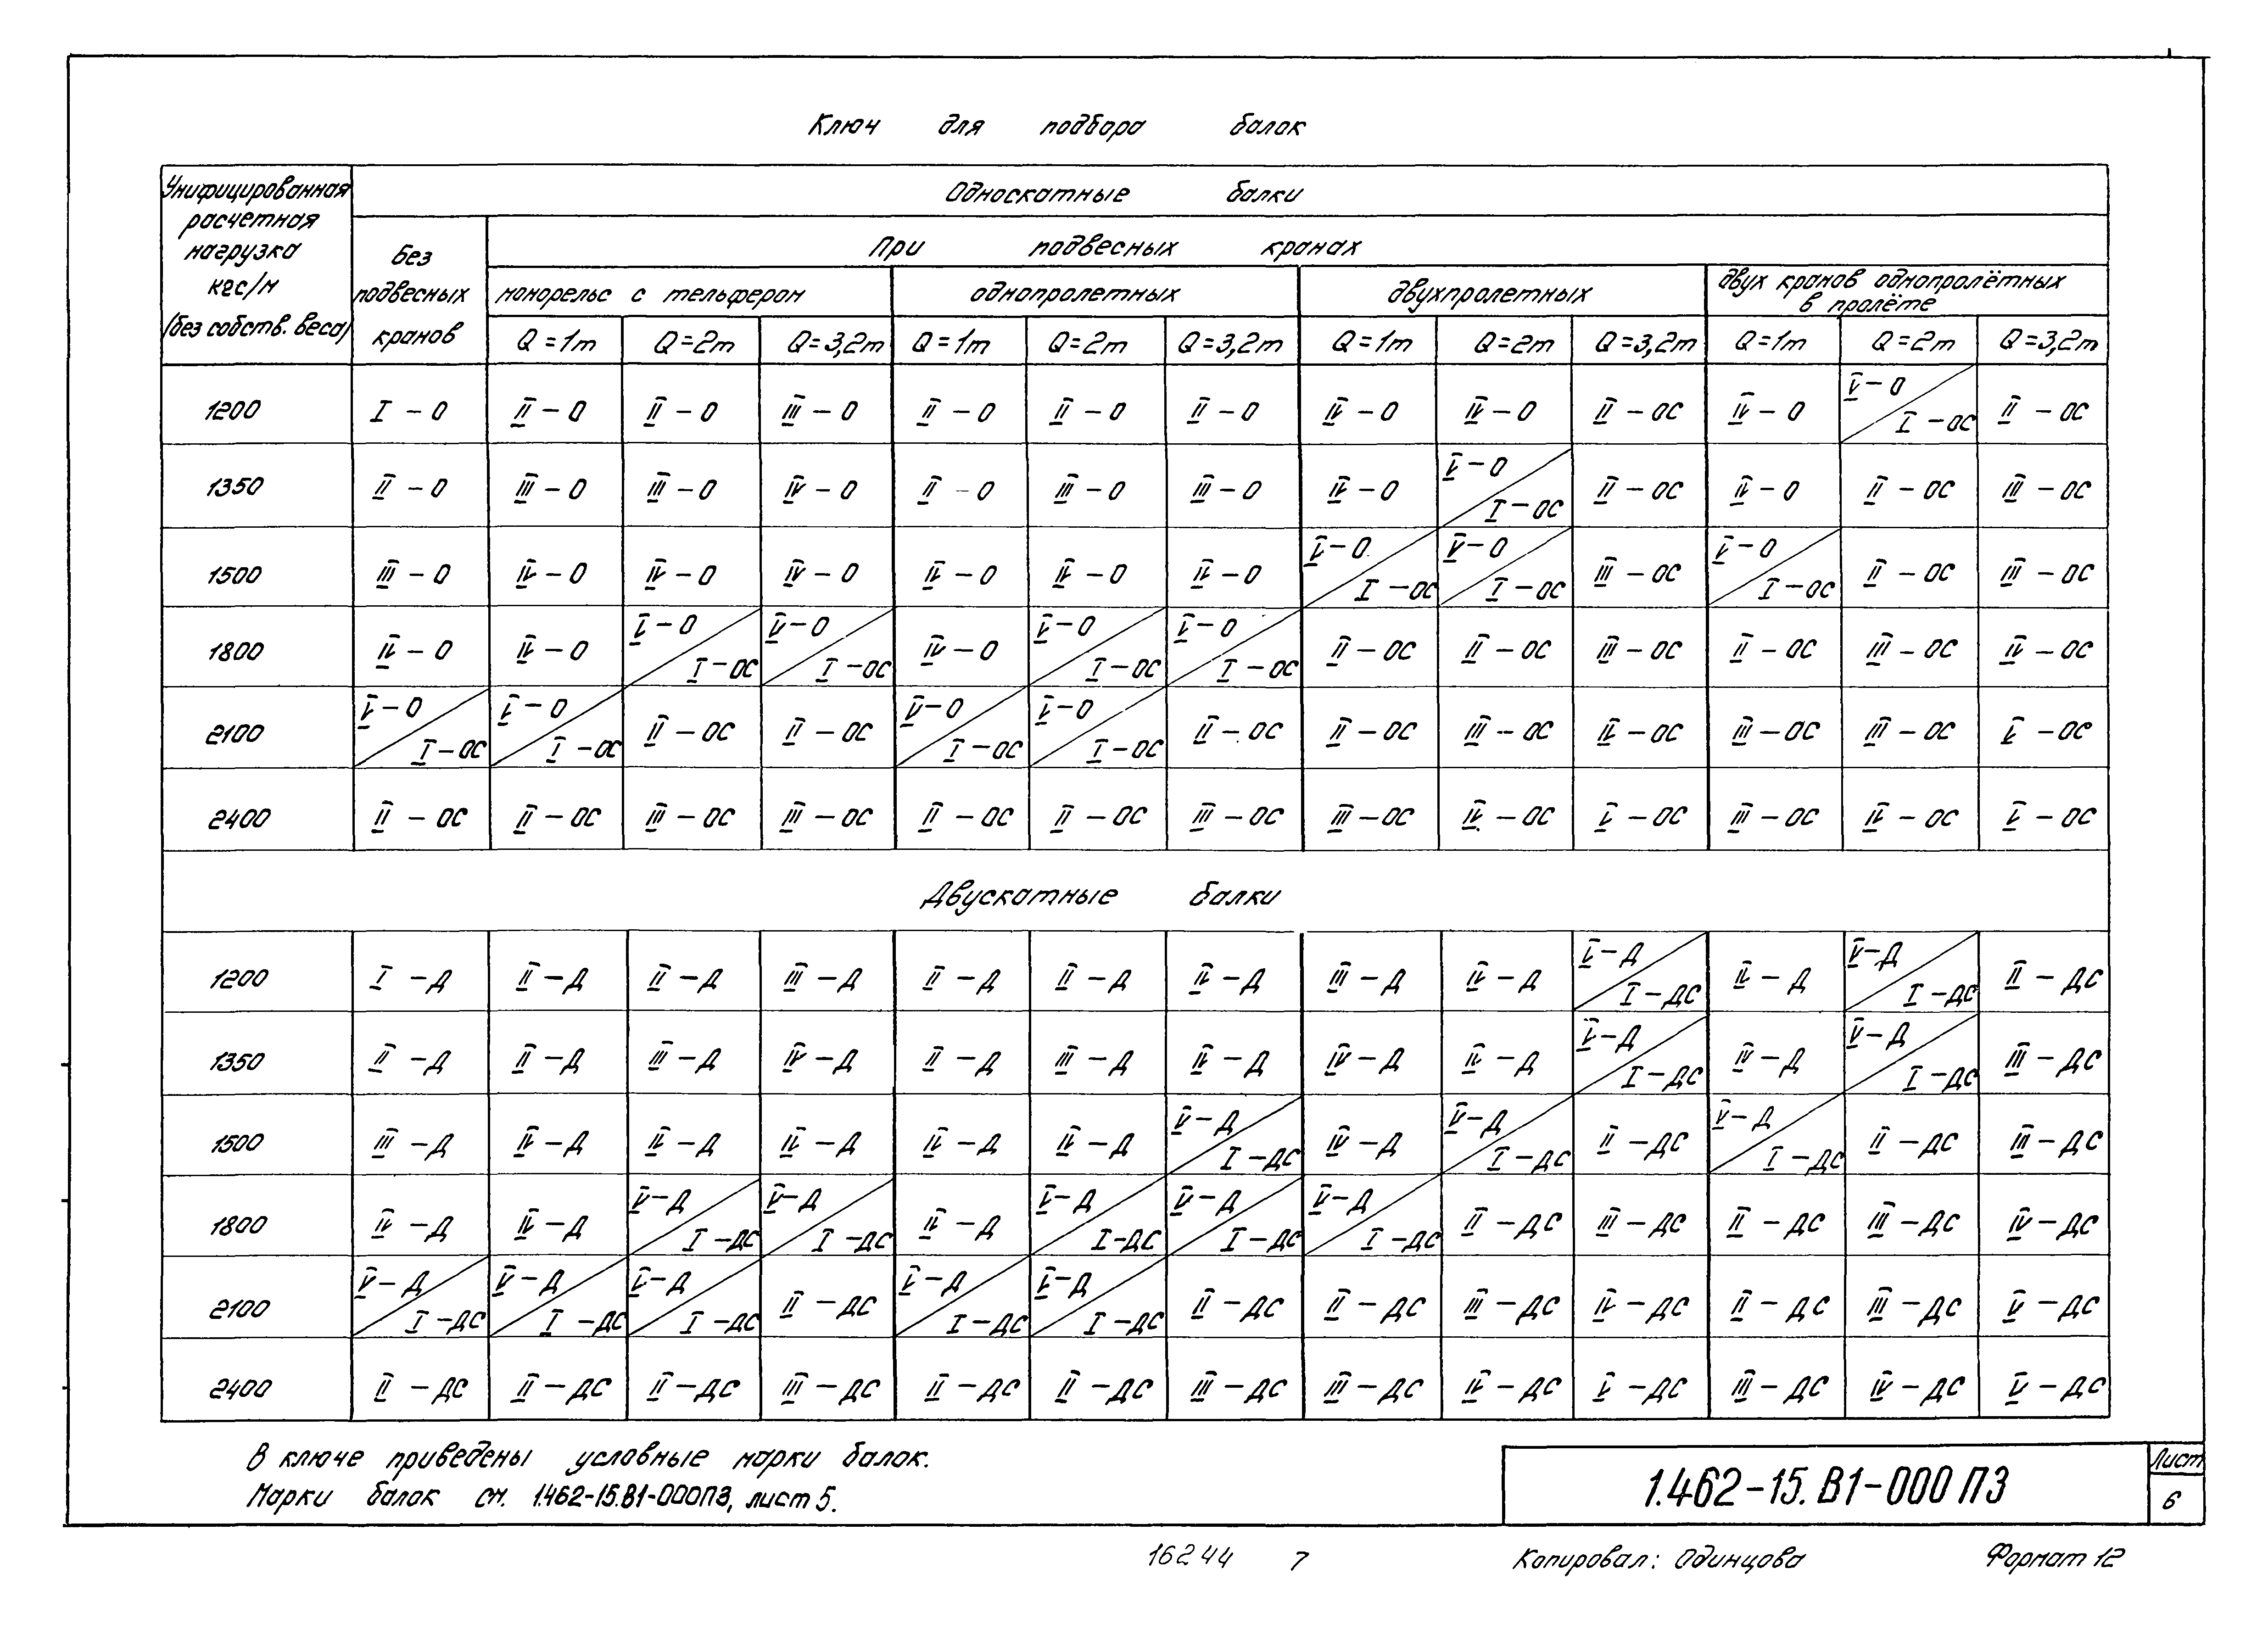 Ключ для подбора балок
Унифицированная
расчетная
нагрузка
кгс/м
(без собств. веса)
Односкатные балки
Без
подвесных
кранов
При подвесных кранах
монорельс с тельфером
однопролетных
двухпролетных
двух кранов однопролётных
в пролёте
Q=1т Q=2т Q=3,2т Q=1т Q=2т Q=3,2т Q=1т Q=2т Q=3,2т Q=1т Q=2т Q=3,2т
1200 I-О II-О II-О III-О II-О II-О II-О IV-О IV-О II-ОС IV-О V-О/I-ОС II-ОС
1350 II-О III-О III-О IV-О II-О III-О III-О IV-О V-О/I-ОС II-ОС IV-О II-ОС III-ОС
1500 III-О IV-О IV-О IV-О IV-О IV-О IV-О V-О/I-ОС V-О/I-ОС III-ОС V-О/I-ОС II-ОС III-ОС
1800 IV-О IV-О V-О/I-ОС V-О/I-ОС IV-О V-О/I-ОС V-О/I-ОС II-ОС II-ОС III-ОС II-ОС III-ОС IV-ОС
2100 V-О/I-ОС V-О/I-ОС II-ОС II-ОС V-О/I-ОС V-О/I-ОС II-ОС II-ОС III-ОС IV-ОС III-ОС III-ОС V-ОС
2400 II-ОС II-ОС III-ОС III-ОС II-ОС II-ОС III-ОС III-ОС IV-ОС V-ОС III-ОС IV-ОС V-ОС
Двускатные балки
1200 I-Д II-Д II-Д III-Д II-Д II-Д IV-Д III-Д IV-Д V-Д/I-ДС IV-Д V-Д/I-ДС II-ДС
1350 II-Д II-Д III-Д IV-Д II-Д III-Д IV-Д IV-Д IV-Д V-Д/I-ДС IV-Д V-Д/I-ДС III-ДС
1500 III-Д IV-Д IV-Д IV-Д IV-Д IV-Д V-Д/I-ДС IV-Д V-Д/I-ДС II-ДС V-Д/I-ДС II-ДС III-ДС
1800 IV-Д IV-Д V-Д/I-ДС V-Д/I-ДС IV-Д V-Д/I-ДС V-Д/I-ДС V-Д/I-ДС II-ДС III-ДС II-ДС III-ДС IV-ДС
2100 V-Д/I-ДС V-Д/I-ДС V-Д/I-ДС II-ДС V-Д/I-ДС V-Д/I-ДС II-ДС II-ДС III-ДС IV-ДС II-ДС III-ДС V-ДС
2400 II-ДС II-ДС II-ДС III-ДС II-ДС II-ДС III-ДС III-ДС IV-ДС V-ДС III-ДС IV-ДС V-ДС
В ключе приведены условные марки балок.
Марки балок см. 1.462-15.В1-000ПЗ, лист 5.
1.462-15.В1-000 ПЗ
Лист
6
16244 7
Копировал: Одинцова
Формат 12